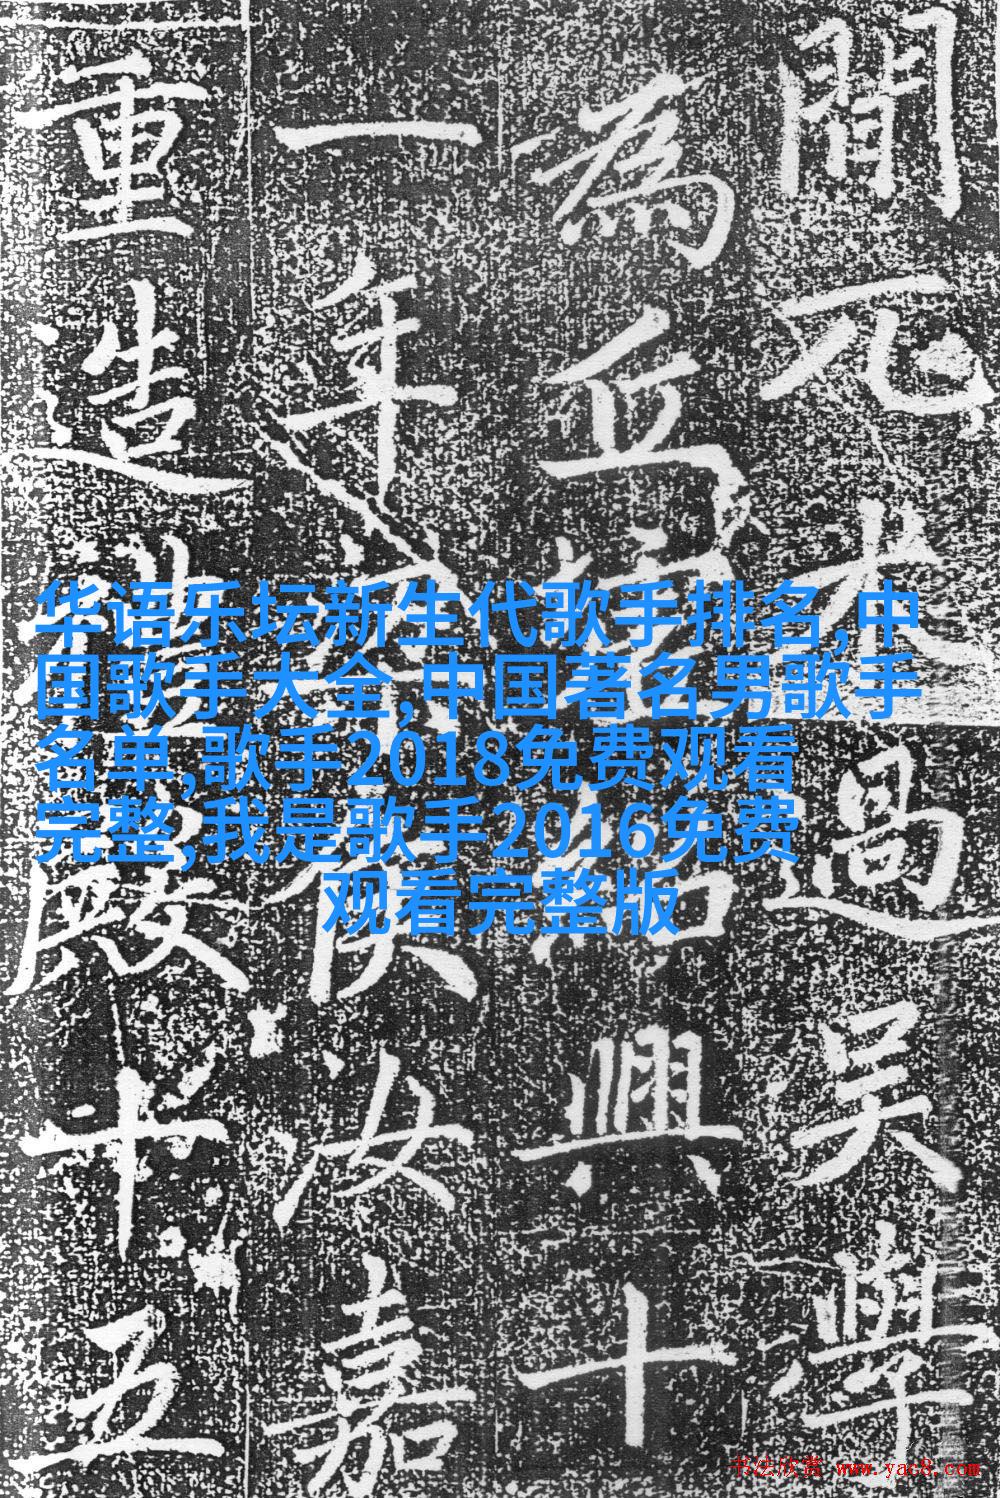 間元過吳
為丘興十
一年汝嘉
重造殿十五
华语乐坛新生代歌手排名,中
国歌手大全,中国著名男歌手
名单,歌手2018免费观看
完整,我是歌手2016免费
观看完整版
书法欣赏 www.yac8.com